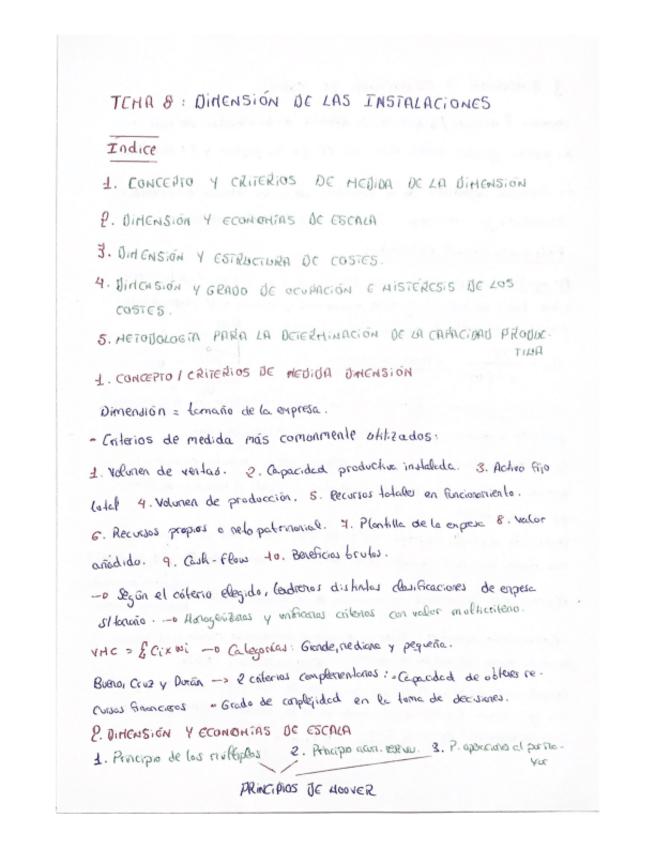 TEMA 8: DIMENSIÓN DE LAS INSTALACIONES
Índice
1. CONCEPTO Y CRITERIOS DE MEDIDA DE LA DIMENSIÓN
2. DIMENSIÓN Y ECONOMÍAS DE ESCALA
3. DIMENSIÓN Y ESTRUCTURA DE COSTES.
4. DIMENSIÓN Y GRADO DE OCUPACIÓN E HISTÉRESIS DE LOS
COSTES.
5. METODOLOGÍA PARA LA DETERMINACIÓN DE LA CAPACIDAD PRODUC-
TIVA
1. CONCEPTO / CRITERIOS DE MEDIDA DIMENSIÓN
Dimensión = tamaño de la empresa.
- Criterios de medida más comonmente utilizados:
1. Volumen de ventas. 2. Capacidad productiva instalada. 3. Activo fijo
total 4. Volumen de producción. 5. Recursos totales en funcionamiento.
6. Recursos propios o neto patrimonial. 7. Plantilla de la empresa 8. Valor
añadido. 9. Cash-Flow 10. Beneficios brutos.
→ Según el criterio elegido, tendremos distintas clasificaciones de empresa
s/tamaño. → y unificarlas criterios con valor multicriterio.
VMC = Σ Ci x Wi → Categorías: Grande, mediana y pequeña.
Bueno, Cruz y Durán → 2 criterios complementarios: - Capacidad de obtener re-
cursos financieros - Grado de complejidad en la toma de decisiones.
2. DIMENSIÓN Y ECONOMÍAS DE ESCALA
1. Principio de los múltiplos 2. Principio acum. reserv. 3. P.
PRINCIPIOS DE HOOVER